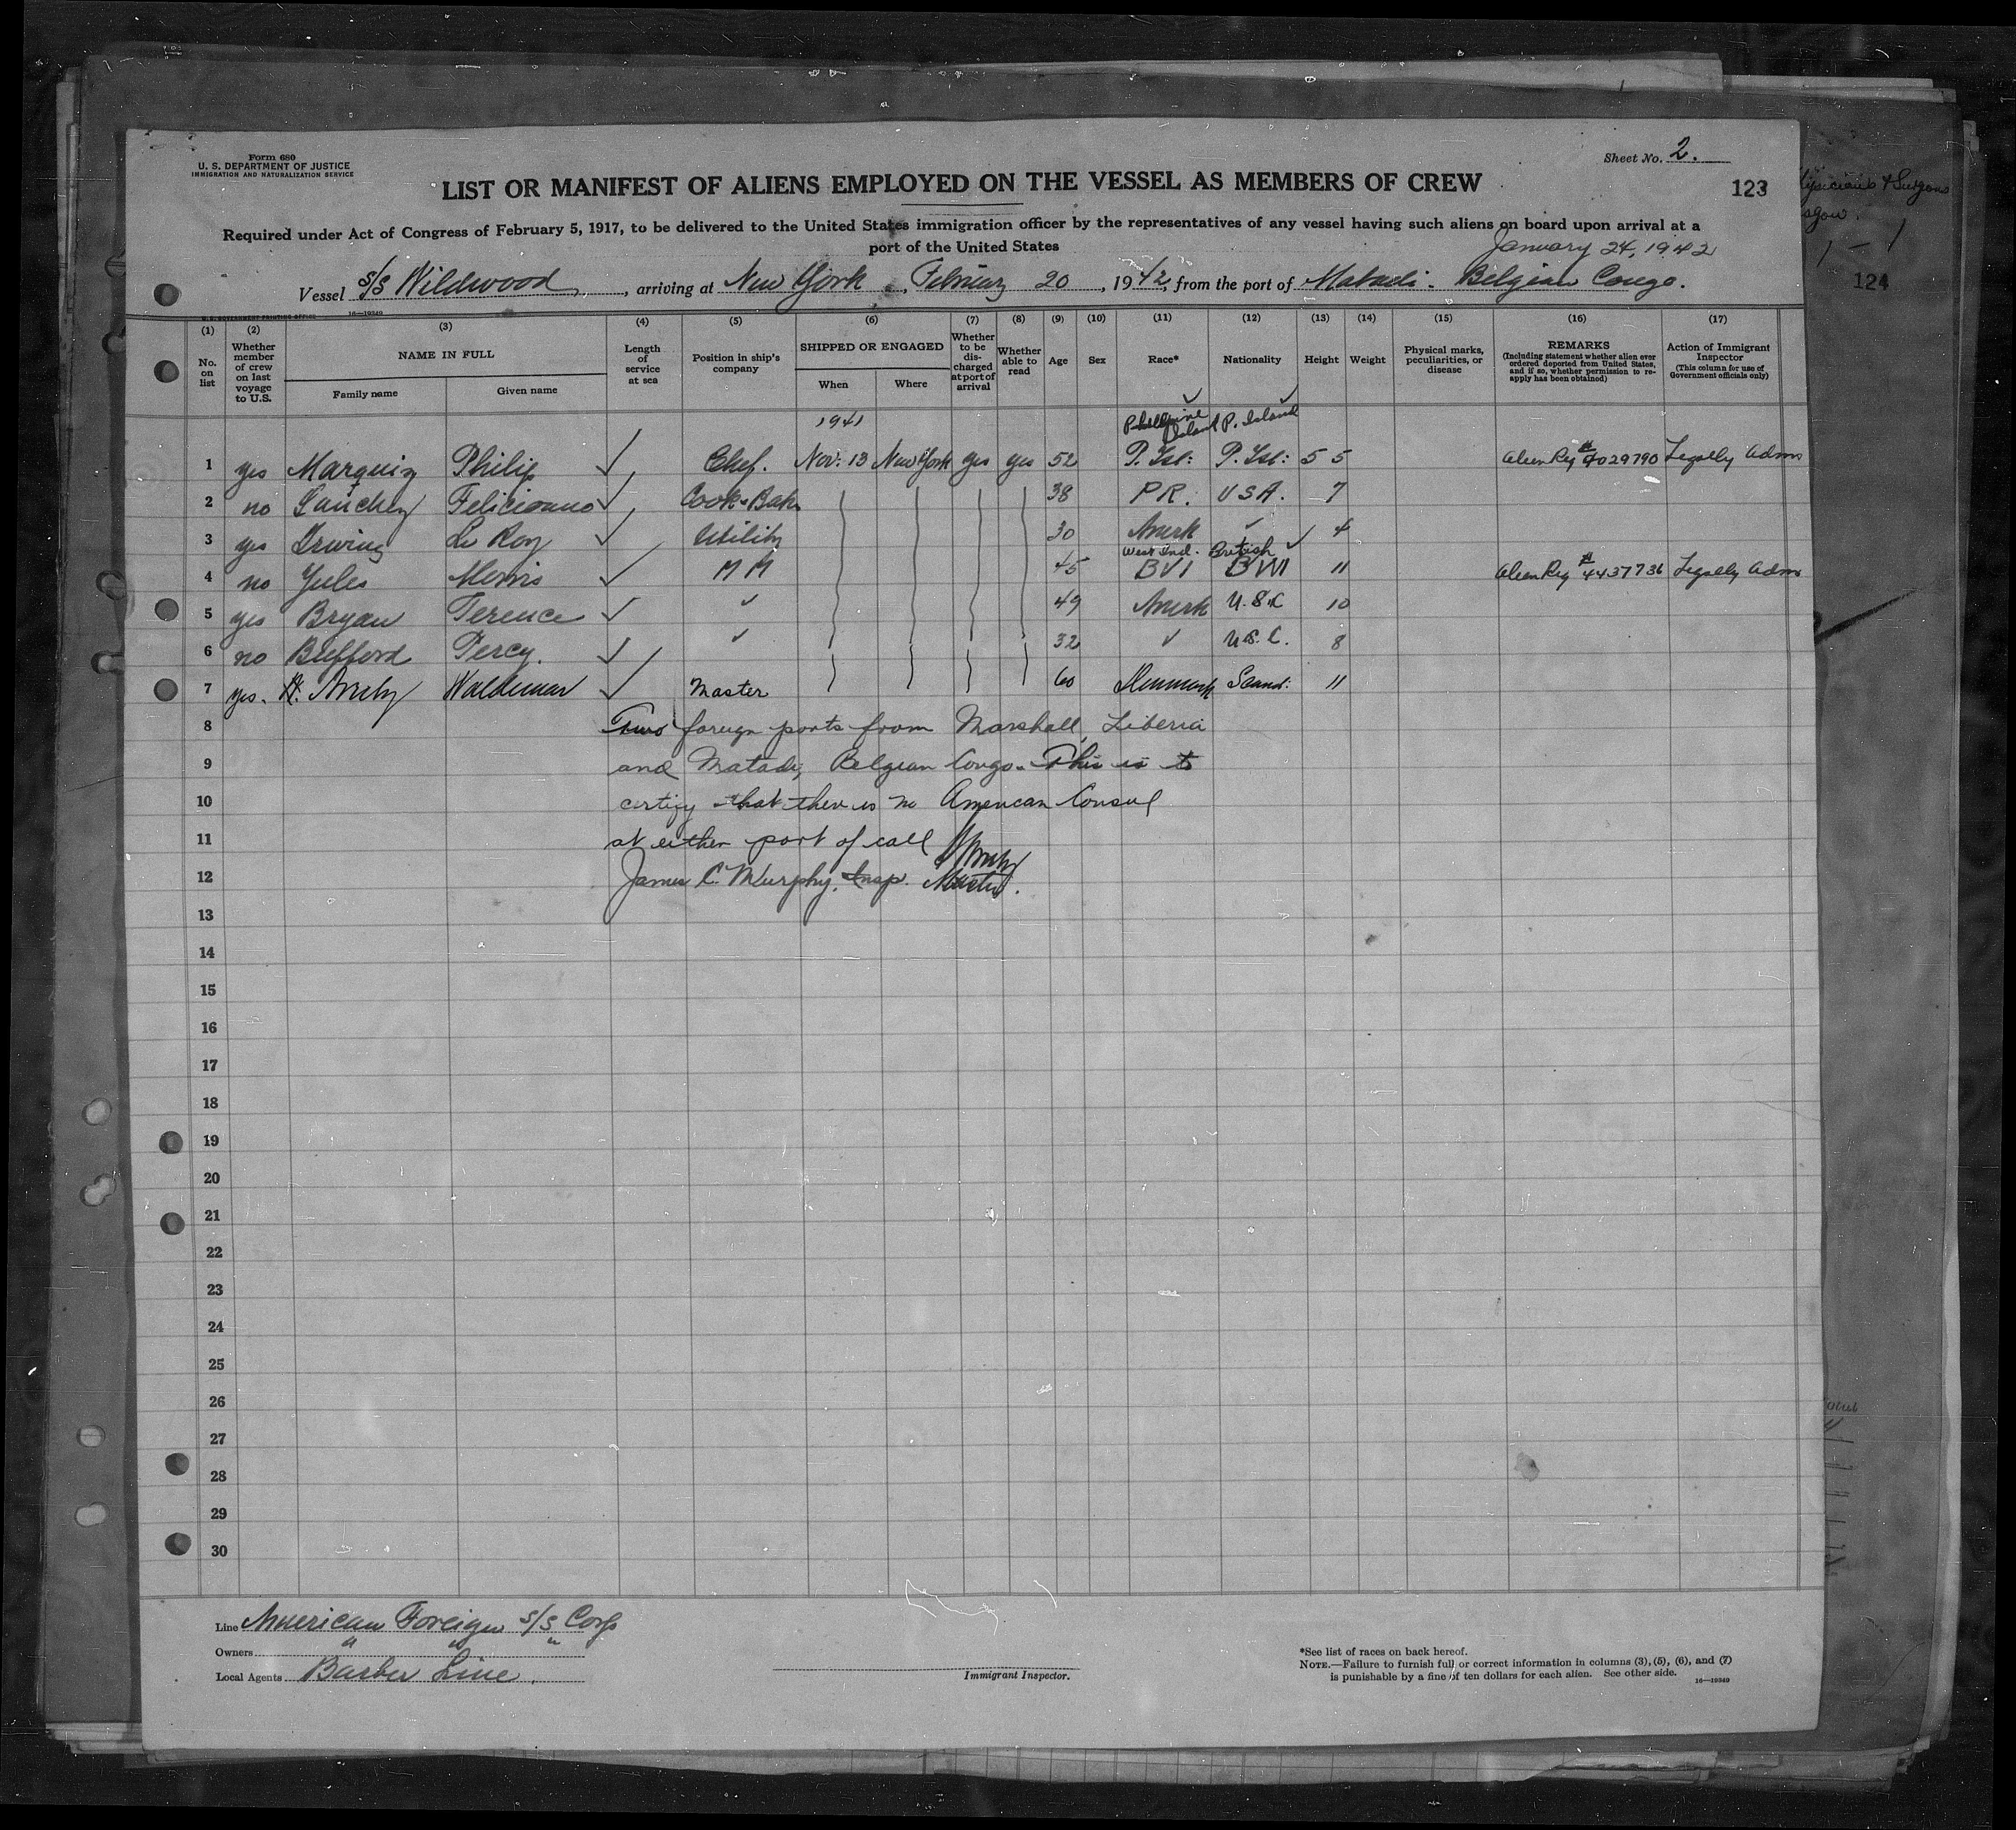 Form 680
U. S. DEPARTMENT OF JUSTICE
IMMIGRATION AND NATURALIZATION SERVICE
Sheet No. 2.
LIST OR MANIFEST OF ALIENS EMPLOYED ON THE VESSEL AS MEMBERS OF CREW
123
Required under Act of Congress of February 5, 1917, to be delivered to the United States immigration officer by the representatives of any vessel having such aliens on board upon arrival at a
port of the United States
January 24, 1942
Vessel S/S Wildwood, arriving at New York, February 20, 1942, from the port of Matadi - Belgian Congo.
124
U. S. GOVERNMENT PRINTING OFFICE 16—19349
(1) (2) (3) (4) (5) (6) (7) (8) (9) (10) (11) (12) (13) (14) (15) (16) (17)
No. on list
Whether member of crew on last voyage to U.S.
NAME IN FULL
Family name
Given name
Length of service at sea
Position in ship's company
SHIPPED OR ENGAGED
When
Where
Whether to be discharged at port of arrival
Whether able to read
Age
Sex
Race*
Nationality
Height
Weight
Physical marks, peculiarities, or disease
REMARKS
(Including statement whether alien ever ordered deported from United States, and if so, whether permission to reapply has been obtained)
Action of Immigrant Inspector
(This column for use of Government officials only)
1941 Philippine Island P. Island
1 yes Marquiz Philip Chef. Nov. 13 New York yes yes 52 P. Isl: P. Isl: 5 5 Alien Reg # 4029790 Legally Adm
2 no Sanchez Feliciano Cook & Bak 38 P R. U S A. 7
3 yes Irving Le Roy Utility 30 Amerk 4
West Ind. British
4 no Jules Morris M M 45 B V I B W I 11 Alien Reg # 4437736 Legally Adm
5 yes Bryan Terence 49 Amerk U.S.C 10
6 no Bufford Percy. 32 U.S.C. 8
7 yes. Waldemar Master 60 Denmark Scand: 11
8 Two foreign ports from Marshall, Liberia
9 and Matadi, Belgian Congo. This is to
10 certify that there is no American Consul
11 at either port of call
12 James C. Murphy, Insp. Master.
13
14
15
16
17
18
19
20
21
22
23
24
25
26
27
28
29
30
Line American Foreign S/S Corp
Owners " " "
Local Agents Barber Line.
Immigrant Inspector.
*See list of races on back hereof.
NOTE.—Failure to furnish full or correct information in columns (3), (5), (6), and (7)
is punishable by a fine of ten dollars for each alien. See other side.
16—19349